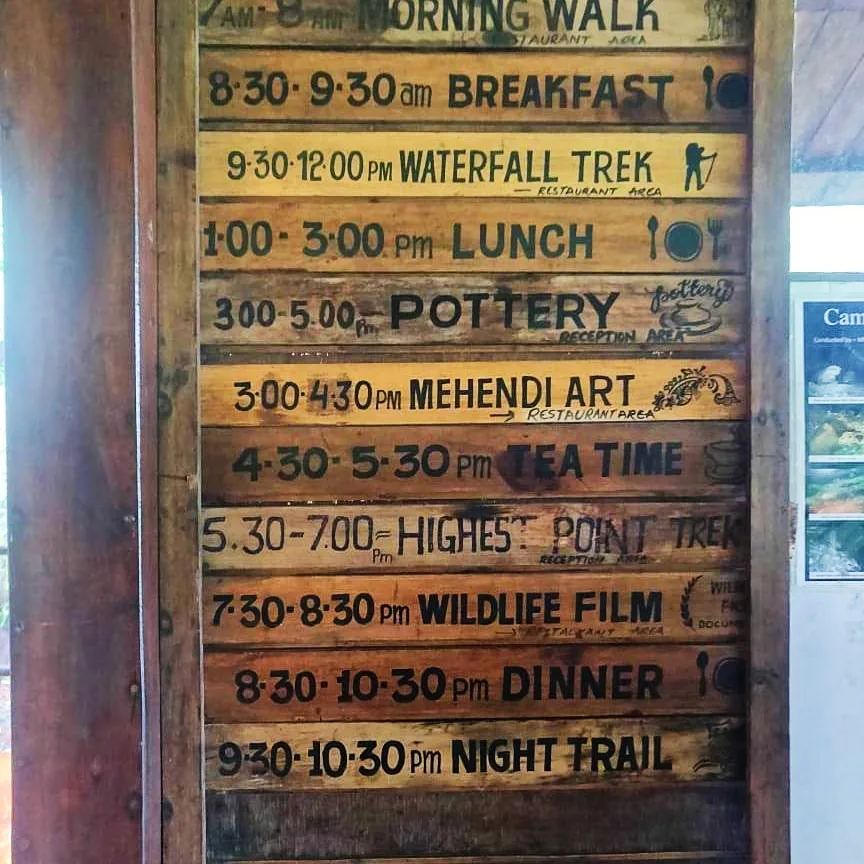 7AM-8AM MORNING WALK
RESTAURANT AREA
8·30·9·30am BREAKFAST
9·30·12·00PM WATERFALL TREK
RESTAURANT AREA
1·00-3·00 pm LUNCH
3 00-5.00 Pm POTTERY pottery
RECEPTION AREA
3·00·4·30PM MEHENDI ART
→ RESTAURANT AREA
4·30-5·30 pm TEA TIME
5.30-7.00 Pm HIGHEST POINT TREK
RECEPTION AREA
7·30·8·30 pm WILDLIFE FILM
→ RESTAURANT AREA
8·30·10·30 pm DINNER
9·30·10·30 pm NIGHT TRAIL
Cam